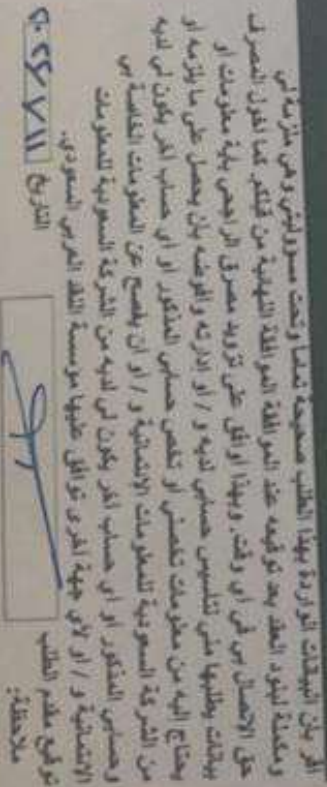 اقر بأن البيانات الواردة بهذا الطلب صحيحة تماما وتحت مسؤوليتي وهي ملزمة لي
ومكملة لبنود العقد بعد توقيعه عند الموافقة النهائية من قبلكم كما اخول المصرف
حق الاتصال بي في أي وقت. وبهذا اوافق على تزويد مصرف الراجحي بأية معلومات او
بيانات يطلبها مني لتأسيس حسابي لديه و / او ادارته وأفوضه بأن يحصل على ما يلزمه او
يحتاج إليه من معلومات تخصني أو تخص حسابي المذكور او أي حساب اخر يكون لي لديه
من الشركة السعودية للمعلومات الائتمانية و / او ان يفصح عن المعلومات الخاصة بي
وحسابي المذكور او أي حساب اخر يكون لي لديه من الشركة السعودية للمعلومات
الائتمانية و / او لأي جهة اخرى توافق عليها مؤسسة النقد العربي السعودي.
توقيع مقدم الطلب التاريخ
ملاحظة: